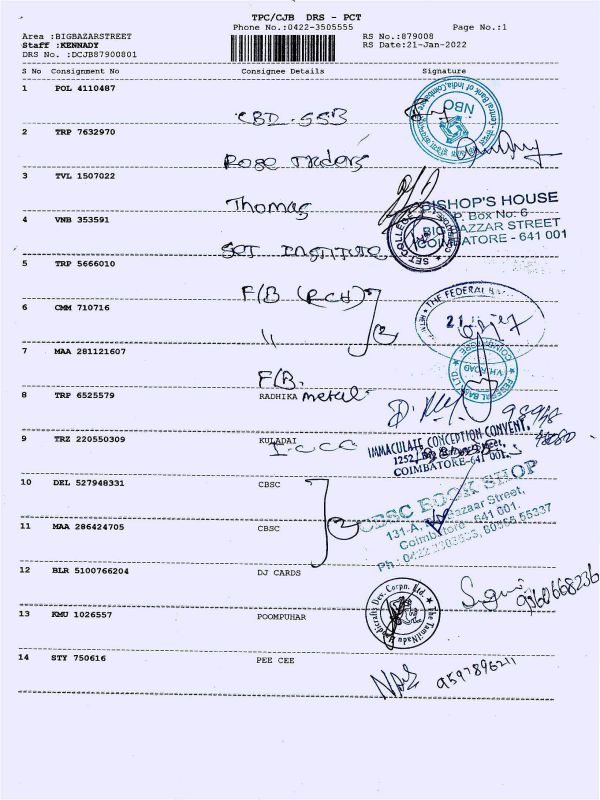 TPC/CJB DRS - PCT
Phone No.:0422-3505555 Page No.:1
Area :BIGBAZARSTREET RS No.:879008
Staff :KENNADY RS Date:21-Jan-2022
DRS No. :DCJB87900801
S No Consignment No Consignee Details Signature
1 POL 4110487
CBD. SSB
2 TRP 7632970
Rose Traders
3 TVL 1507022
Thomas
BISHOP'S HOUSE
P. Box No: 6
BIG BAZZAR STREET
COIMBATORE - 641 001
4 VNB 353591
SET INSTITUTE
5 TRP 5666010
F/B (RCH)
THE FEDERAL
6 CMM 710716
"
21
7 MAA 281121607
F/B.
FEDERAL BANK LTD
V.H. ROAD
8 TRP 6525579 RADHIKA metal
9 TRZ 220550309 KULADAI
I.C.C.C
IMMACULATE CONCEPTION CONVENT,
COIMBATORE-641 001.
10 DEL 527948331 CBSC
CBSC BOOK SHOP
11 MAA 286424705 CBSC
131-A, Bazaar Street,
Coimbatore 641 001.
12 BLR 5100766204 DJ CARDS
13 KMU 1026557 POOMPUHAR
14 STY 750616 PEE CEE